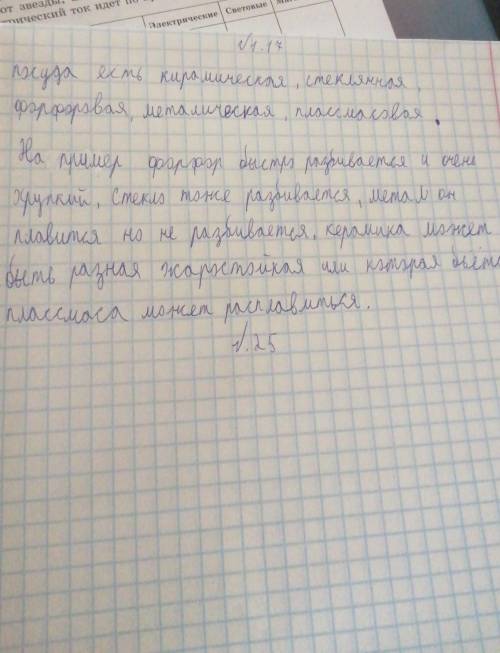 от звезды,
трический ток идет по
Электрические
Световые
№1.17
посуда есть кирамическая, стеклянная,
фарфоровая, металическая, плассмасовая.
На пример фарфор быстро разбивается и очень
хрупкий, стекло тоже разбивается, метал он
плавится но не разбивается, керамика может
быть разная жаростойкая или которая бьётс
плассмаса может расплавиться.
№.25